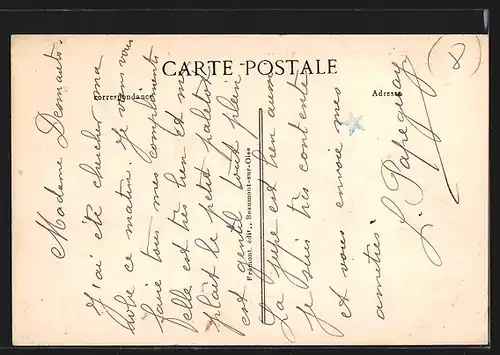 CARTE POSTALE
Correspondance
Adresse
Frémont, édit., Beaumont-sur-Oise
Madame
J'ai été chercher ma
robe ce matin. Je viens vous
faire tous mes compliments
elle est très bien Et me
plait le petit paletot
est gentil tout plein
La jupe est bien aussi
je suis très contente
et vous envoie mes
amitiés
L. Papeguay